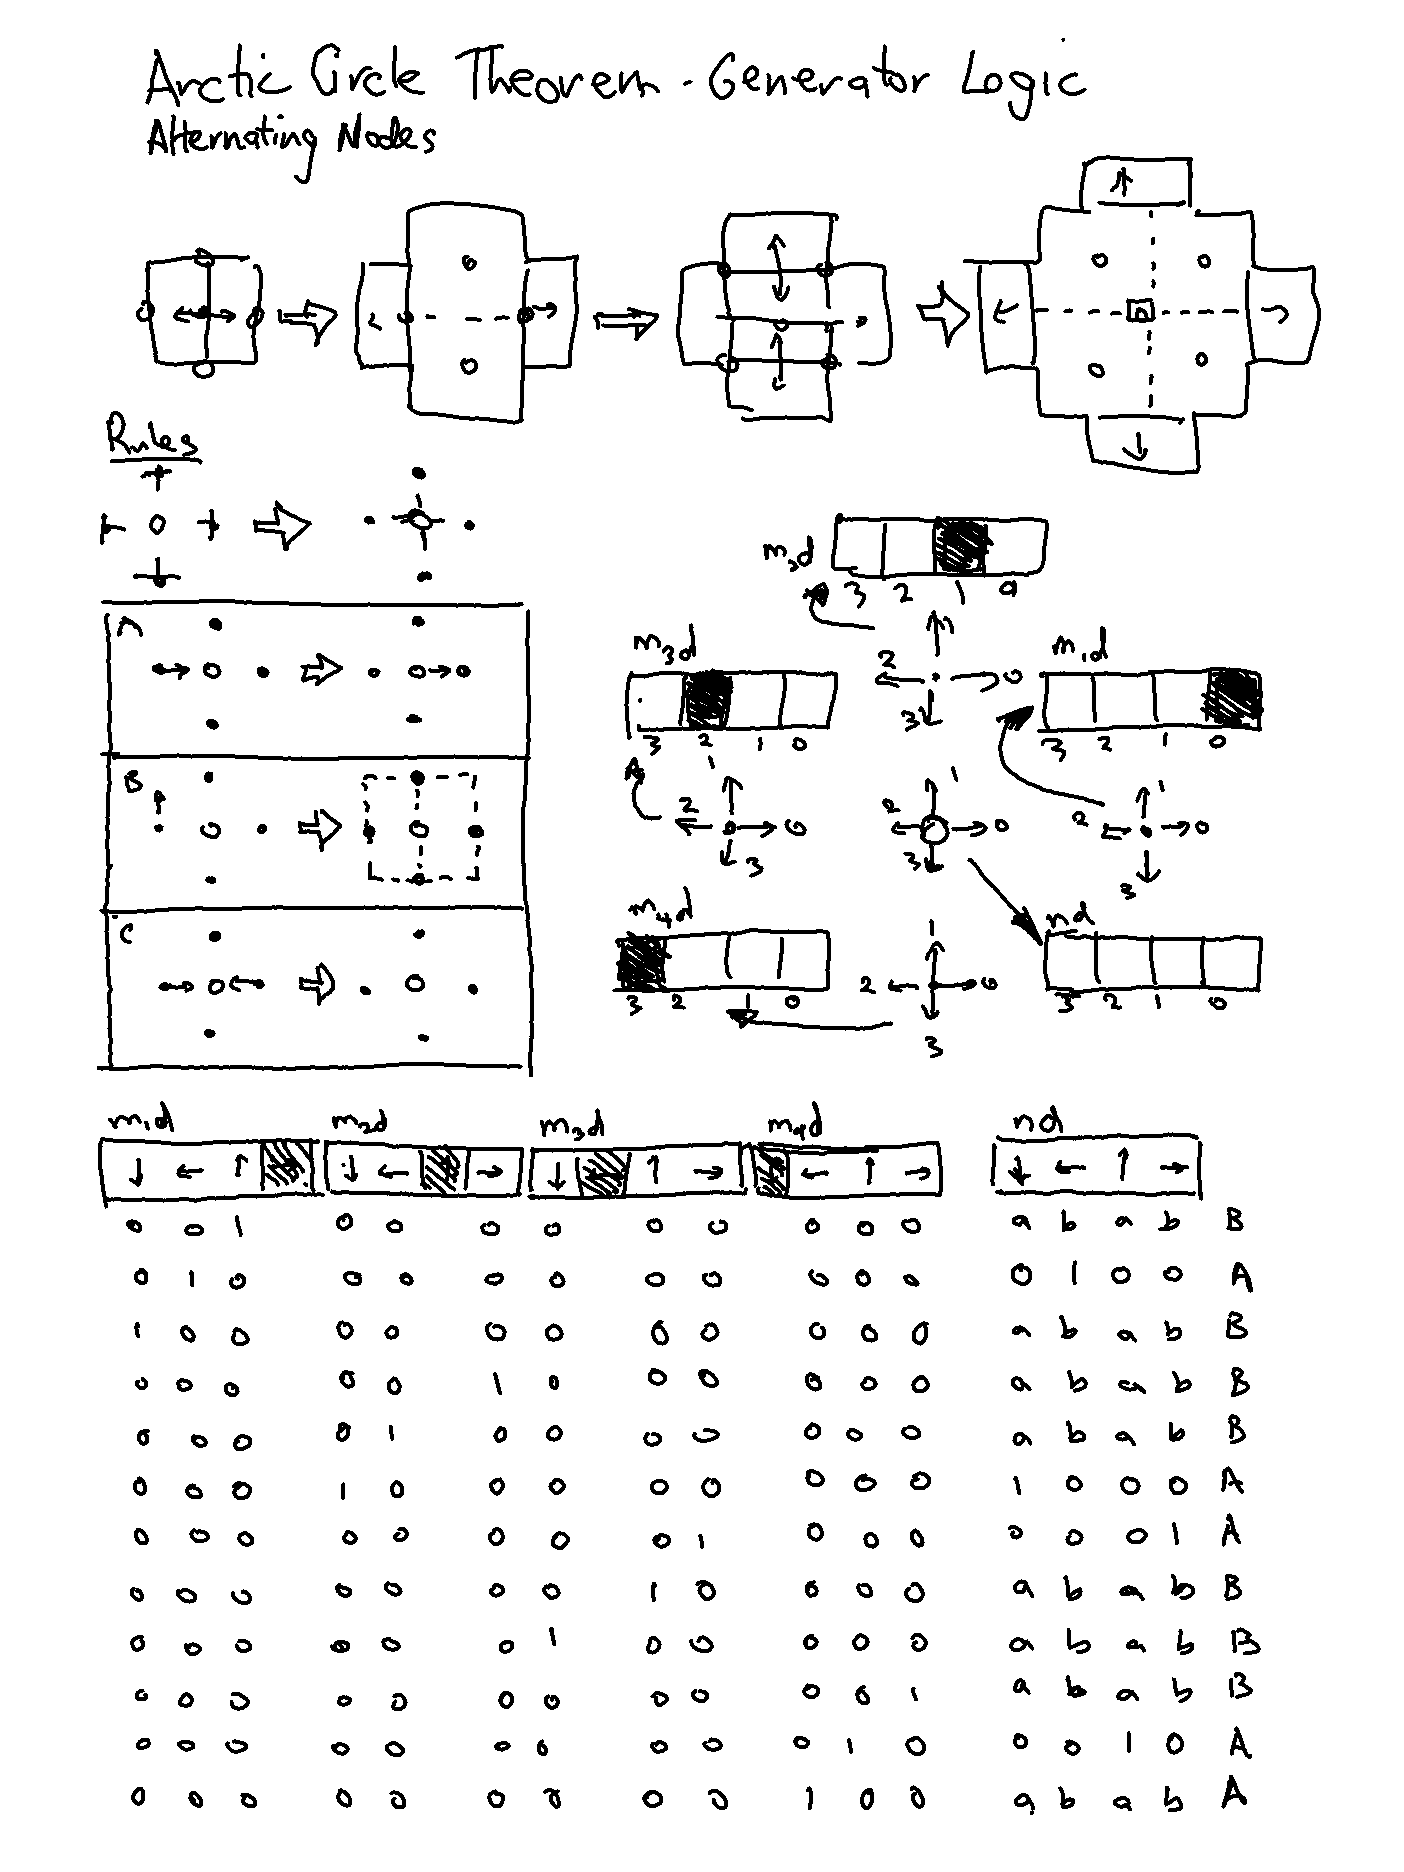 Arctic Circle Theorem - Generator Logic
Alternating Nodes
Rules
A
B
C
m₂d
3 2 1 0
m₃d
3 2 1 0
m₁d
3 2 1 0
1
2 0
3
1
2 0
3
1
2 0
3
1
2 0
3
m₄d
3 2 1 0
nd
3 2 1 0
1
2 0
3
m₁d m₂d m₃d m₄d nd
↓ ← ↑ ↓ ← → ↓ ↑ → ← ↑ → ↓ ← ↑ →
0 0 1 0 0 0 0 0 0 0 0 0 a b a b B
0 1 0 0 0 0 0 0 0 0 0 0 0 1 0 0 A
1 0 0 0 0 0 0 0 0 0 0 0 a b a b B
0 0 0 0 0 1 0 0 0 0 0 0 a b a b B
0 0 0 0 1 0 0 0 0 0 0 0 a b a b B
0 0 0 1 0 0 0 0 0 0 0 0 1 0 0 0 A
0 0 0 0 0 0 0 0 1 0 0 0 0 0 0 1 A
0 0 0 0 0 0 0 1 0 0 0 0 a b a b B
0 0 0 0 0 0 1 0 0 0 0 0 a b a b B
0 0 0 0 0 0 0 0 0 0 0 1 a b a b B
0 0 0 0 0 0 0 0 0 0 1 0 0 0 1 0 A
0 0 0 0 0 0 0 0 0 1 0 0 a b a b A